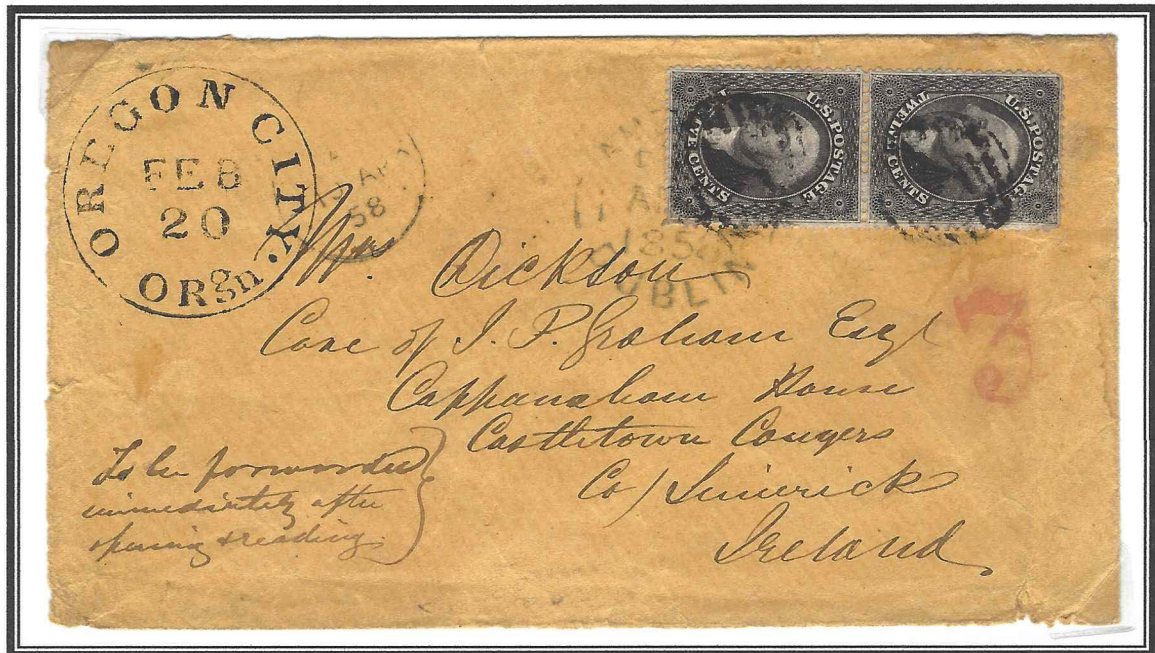 OREGON CITY. ORgn.
FEB
20
AP
58
U.S. POSTAGE
TWELVE CENTS
U.S. POSTAGE
CENTS
DUBLIN
Dickson
Care of J. P. Graham Esq
House
Castletown Conyers
Co/ Limerick
Ireland
To be forwarded
immediately after
opening & reading